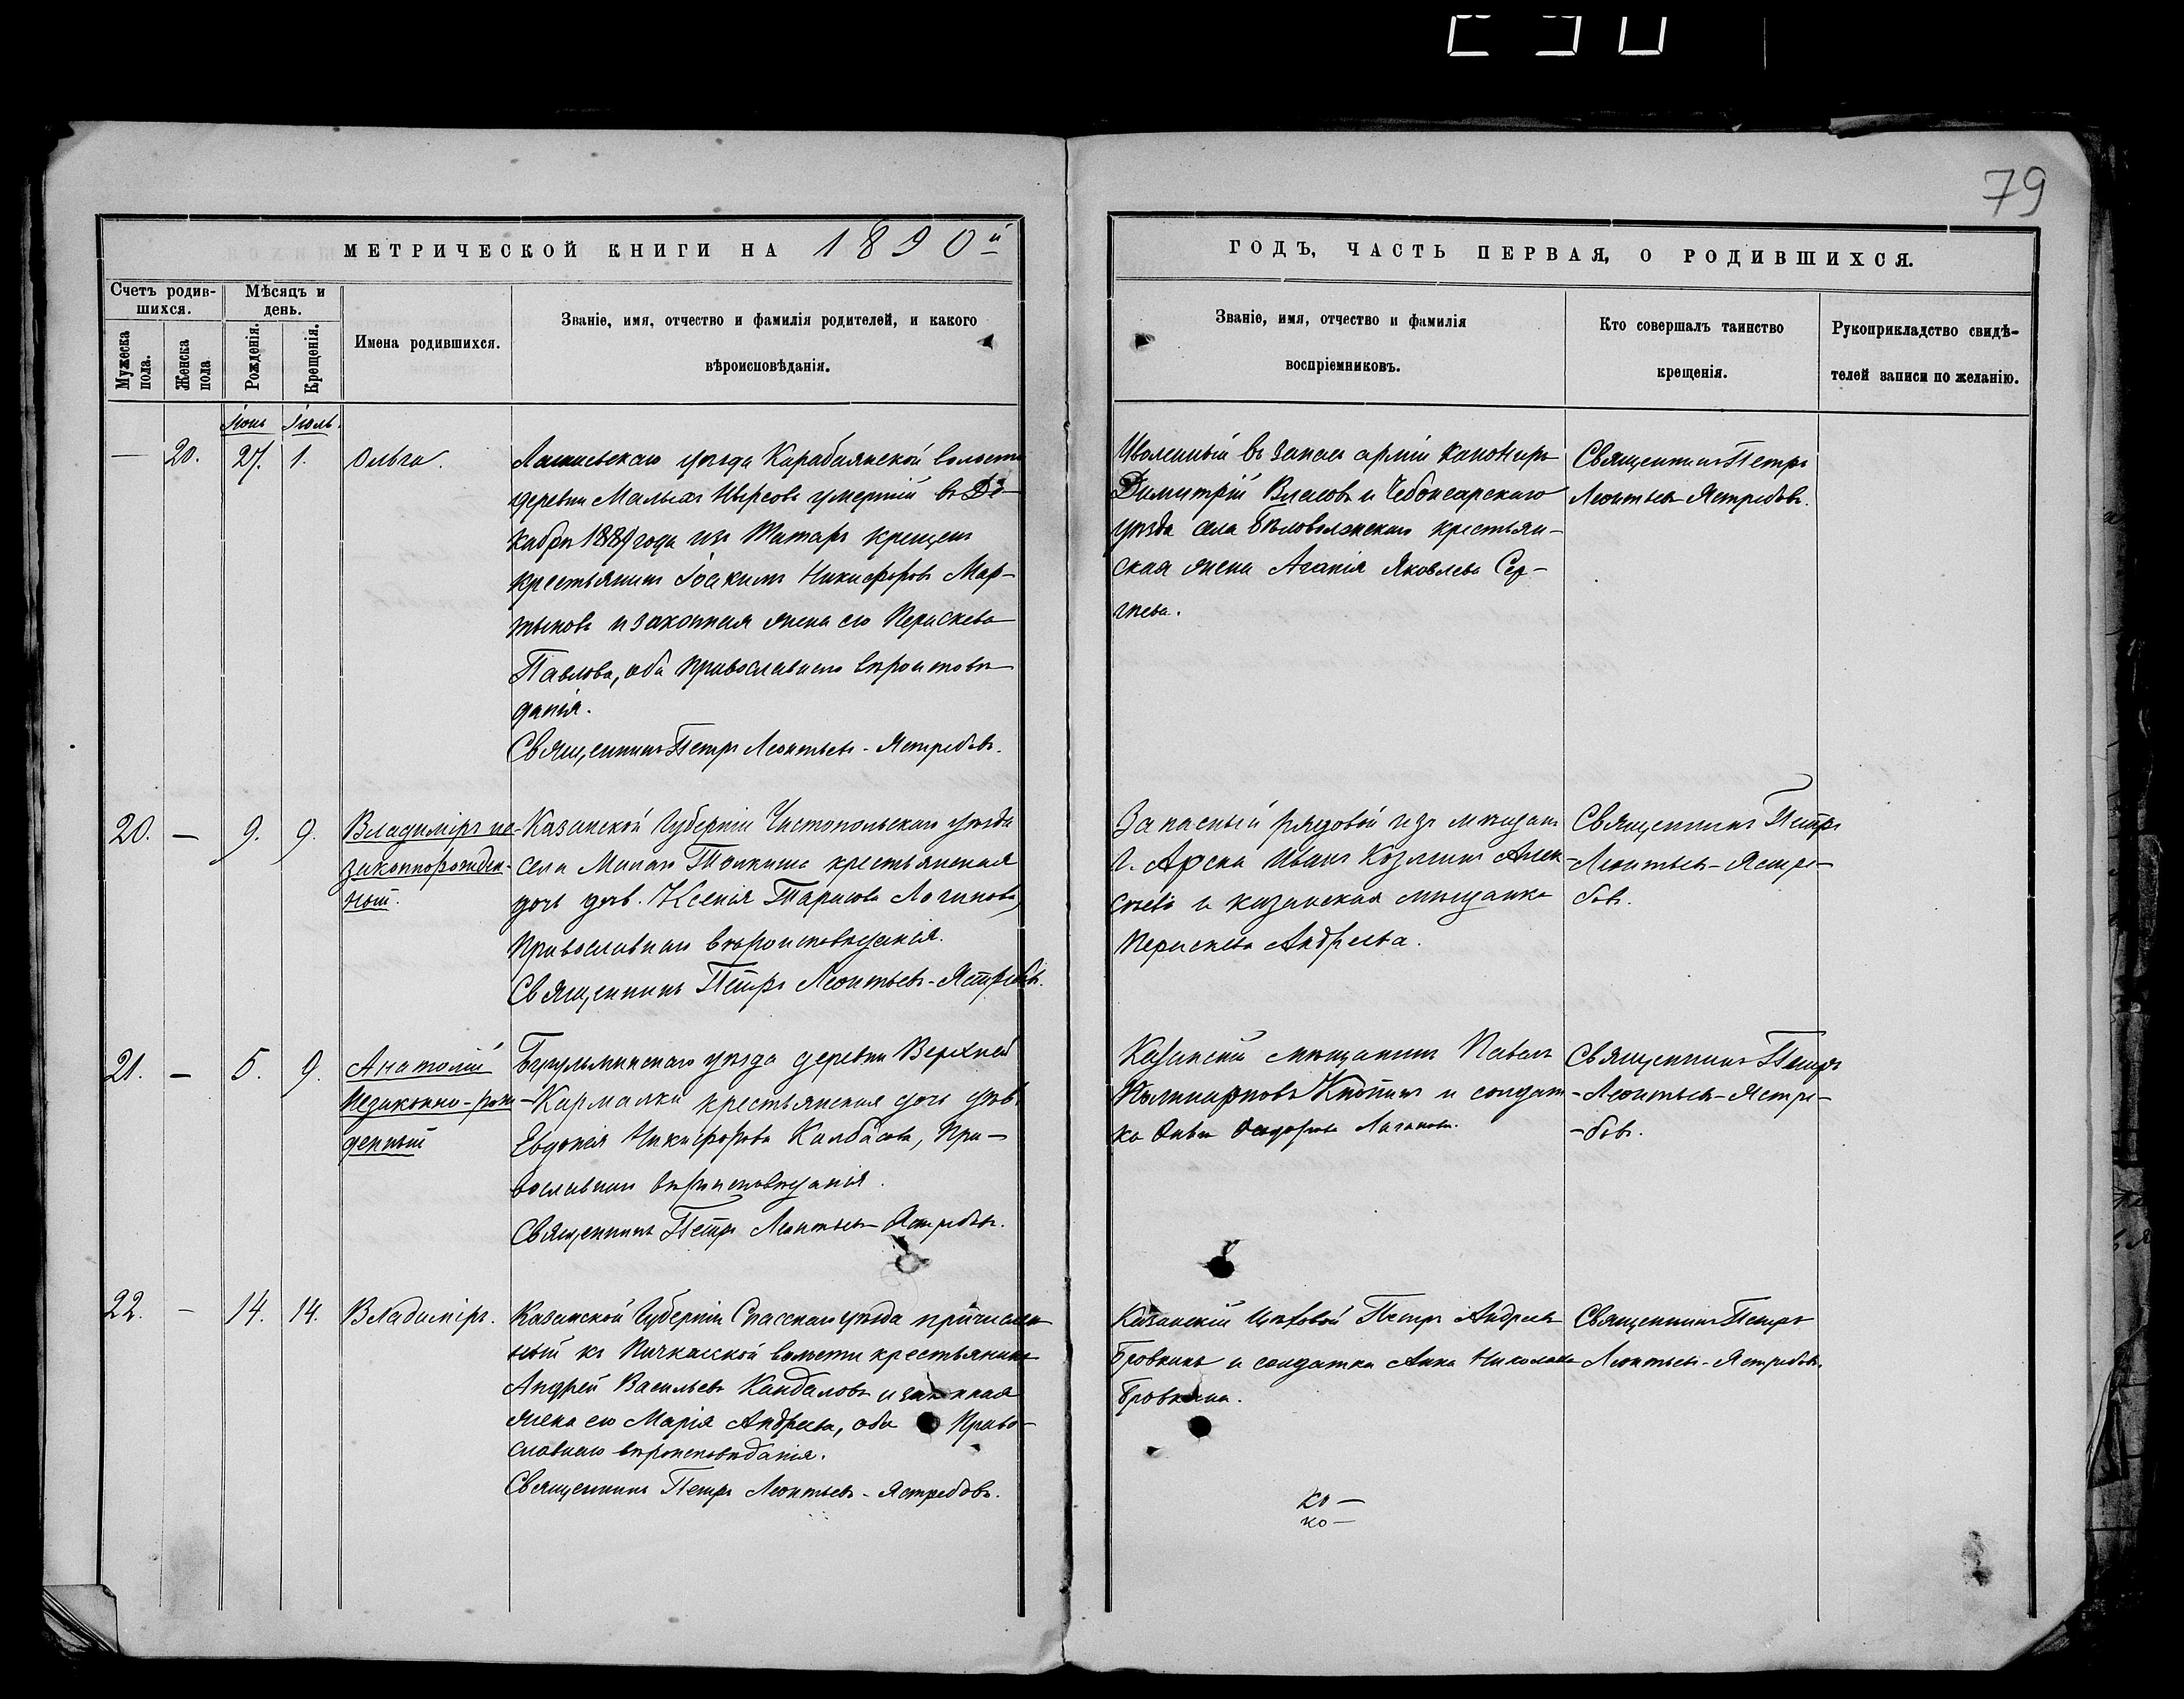 79
МЕТРИЧЕСКОЙ КНИГИ НА 1890й
ГОДЪ, ЧАСТЬ ПЕРВАЯ, О РОДИВШИХСЯ.
Счетъ родив-
шихся.
Мѣсяцъ и
день.
Мужеска
пола.
Женска
пола
Рожденія.
Крещенія.
Имена родившихся.
Званіе, имя, отчество и фамилія родителей, и какого
вѣроисповѣданія.
Званіе, имя, отчество и фамилія
воспріемниковъ.
Кто совершалъ таинство
крещенія.
Рукоприкладство свидѣ-
телей записи по желанію.
Іюнь Іюль.
— 20. 27. 1. Ольга.
Лаишевскаго уѣзда Карабаянской волости
деревни Малыхъ умершій въ Де-
кабрѣ 1889 года изъ Татаръ крещенъ
крестьянинъ Іоакимъ Никифоровъ Мар-
тыновъ и законная жена его Пераскева
Павлова, оба православнаго вѣроисповѣ-
данія.
Священникъ Петръ Леонтьевъ-Ястребовъ.
Уволенный въ запасъ арміи канониръ
Димитрій Власовъ и Чебоксарскаго
уѣзда села Бѣловолжскаго крестьян-
ская жена Агапія Яковлева Сер-
гѣева.
Священникъ Петръ
Леонтьевъ-Ястребовъ.
20. — 9. 9. Владиміръ не-
законнорожден-
ный.
Казанской Губерніи Чистопольскаго уѣзда
села Малаго Толкиша крестьянская
дочь дѣв. Ксенія Тарасова Логинова,
православнаго вѣроисповѣданія.
Священникъ Петръ Леонтьевъ-Ястребовъ.
Запасный рядовой изъ мѣщанъ
г. Арска Иванъ Козминъ Алек-
сѣевъ и казанская мѣщанка
Пераскева Андреева.
Священникъ Петръ
Леонтьевъ-Ястре-
бовъ.
21. — 5. 9. Анатолій
Незаконно-рож-
денный
Бугульминскаго уѣзда деревни Верхней
Кармалки крестьянская дочь дѣв.
Евдокія Никифорова Колбасова, Пра-
вославнаго вѣроисповѣданія.
Священникъ Петръ Леонтьевъ-Ястребовъ.
Казанскій мѣщанинъ Павелъ
Поликарповъ и солдат-
ка
Священникъ Петръ
-Леонтьевъ-Ястре-
-бовъ.
22. — 14. 14. Владиміръ.
Казанской Губерніи Спасскаго уѣзда причислен-
ный къ Пичкасской волости крестьянинъ
Андрей Васильевъ Кандаловъ и законная
жена его Марія Андреева, оба Право-
славнаго вѣроисповѣданія.
Священникъ Петръ Леонтьевъ-Ястребовъ.
Казанскій Цеховой Петръ Андреевъ
Бровкинъ и солдатка Анна Николаева
Бровкина.
Священникъ Петръ
Леонтьевъ-Ястребовъ.
ко—
ко—